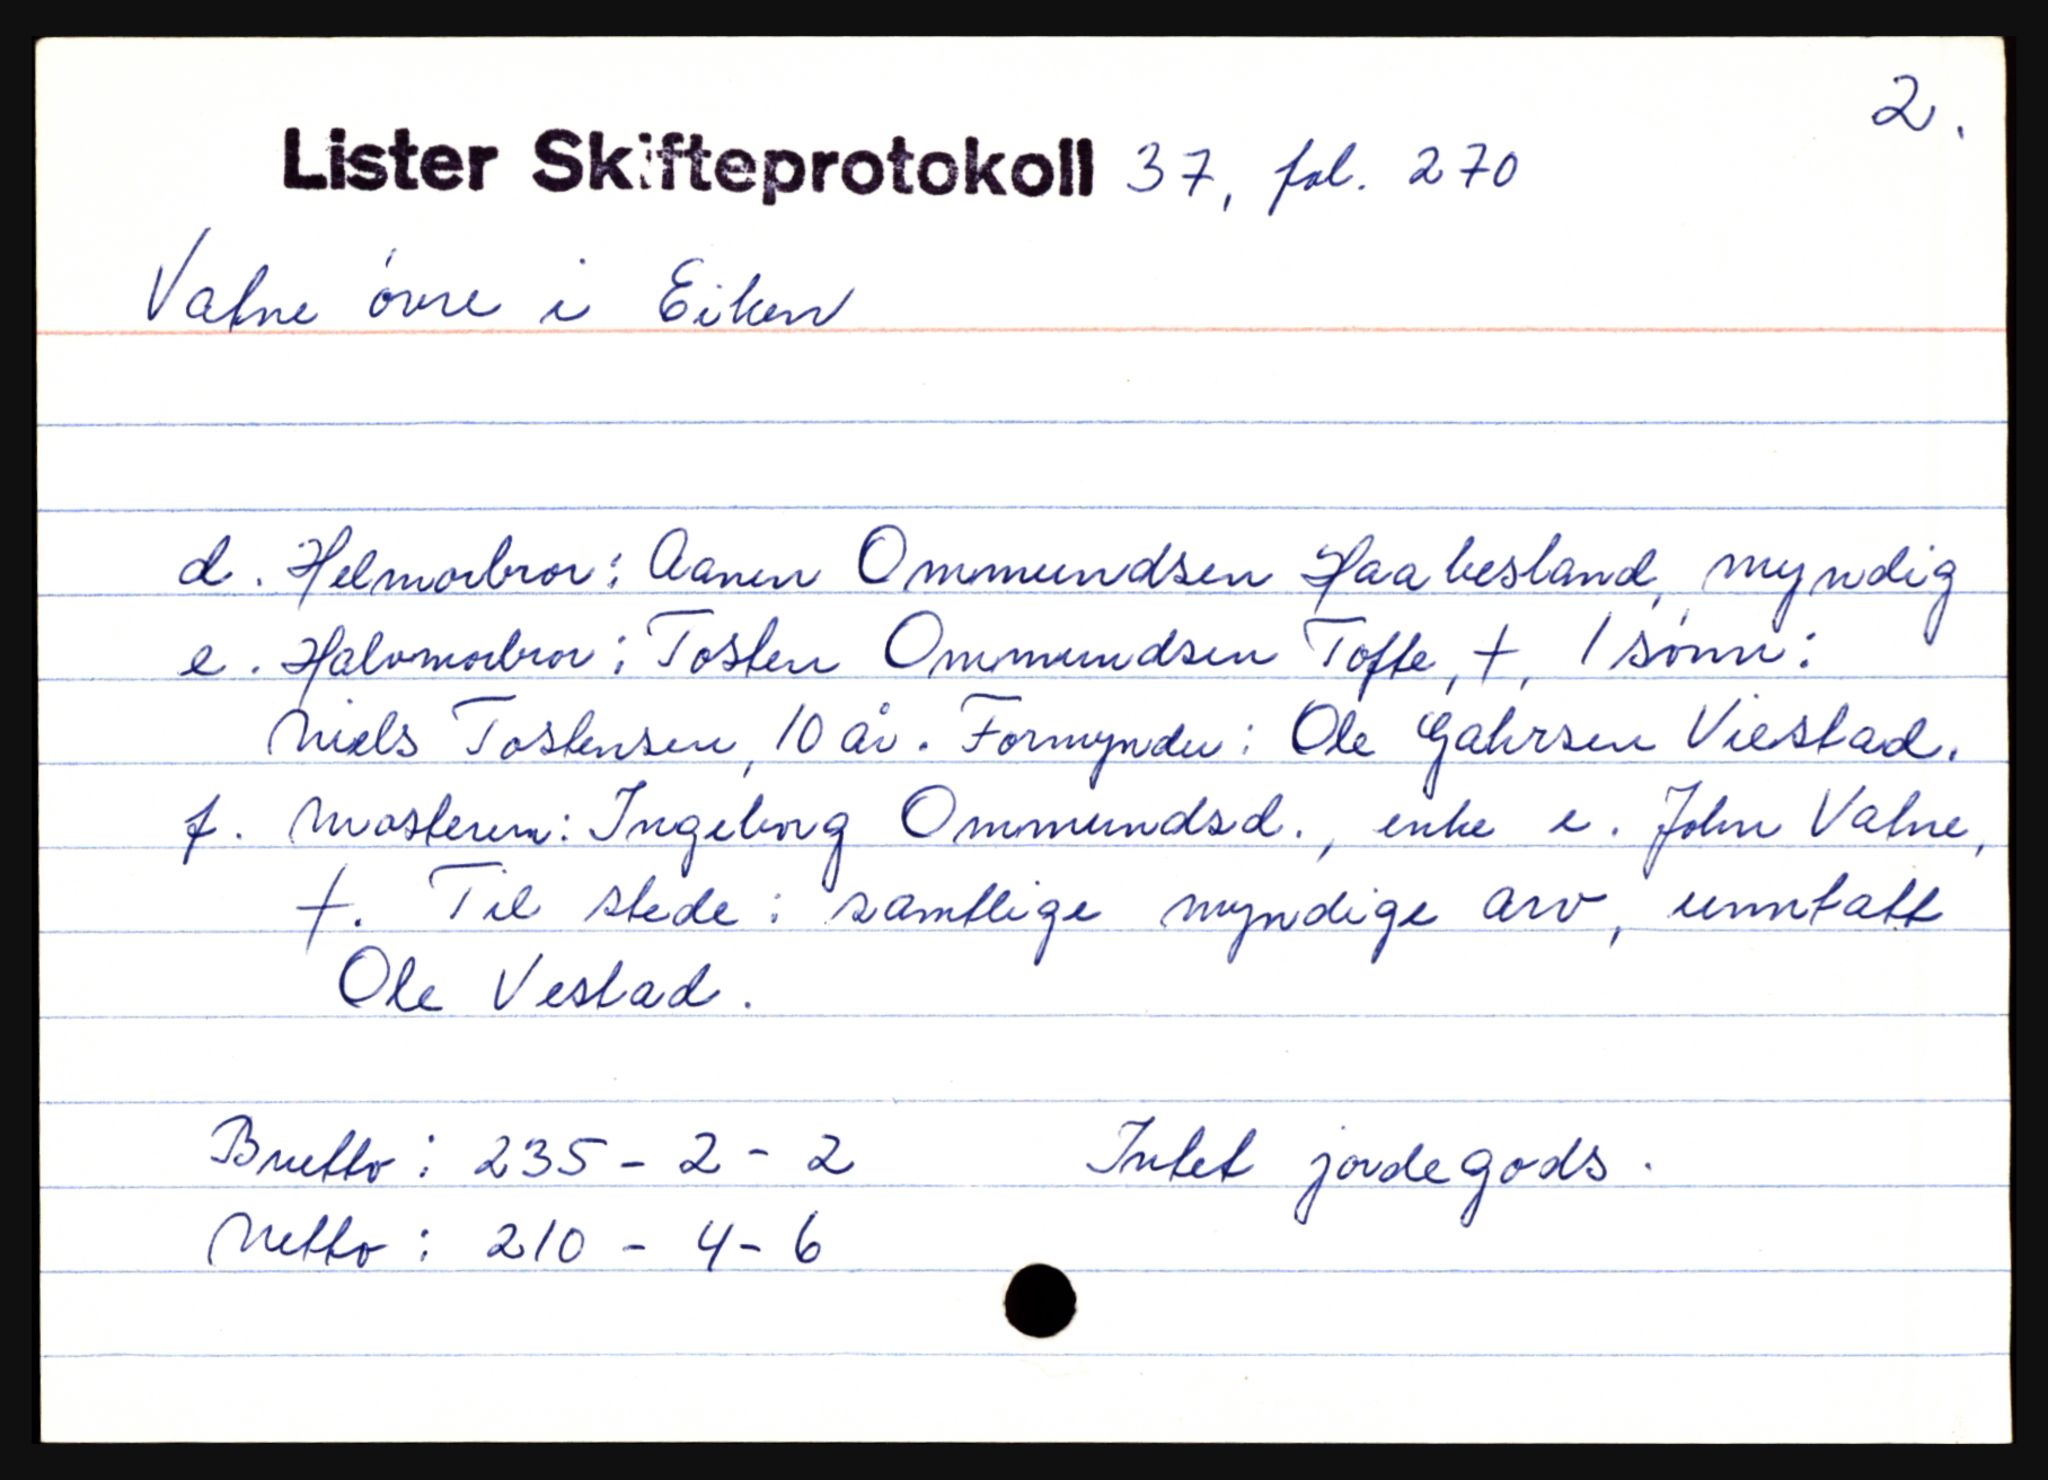 2.
Lister Skifteprotokoll 37, fol. 270
Vatne øvre i Eiken
d. Helmorbror: Aanen Ommundsen Haabesland, myndig
e. Halvmorbror: Tosten Ommundsen Tofte, +, 1 sønn:
Niels Tostensen, 10 år. Formynder: Ole Gahrsen Viestad.
f. Mosteren: Ingeborg Ommundsd., enke e. John Vatne,
+. Til stede: samtlige myndige arv, unntatt
Ole Vestad.
Brutto: 235 - 2 - 2 Intet jordegods.
Netto: 210 - 4 - 6